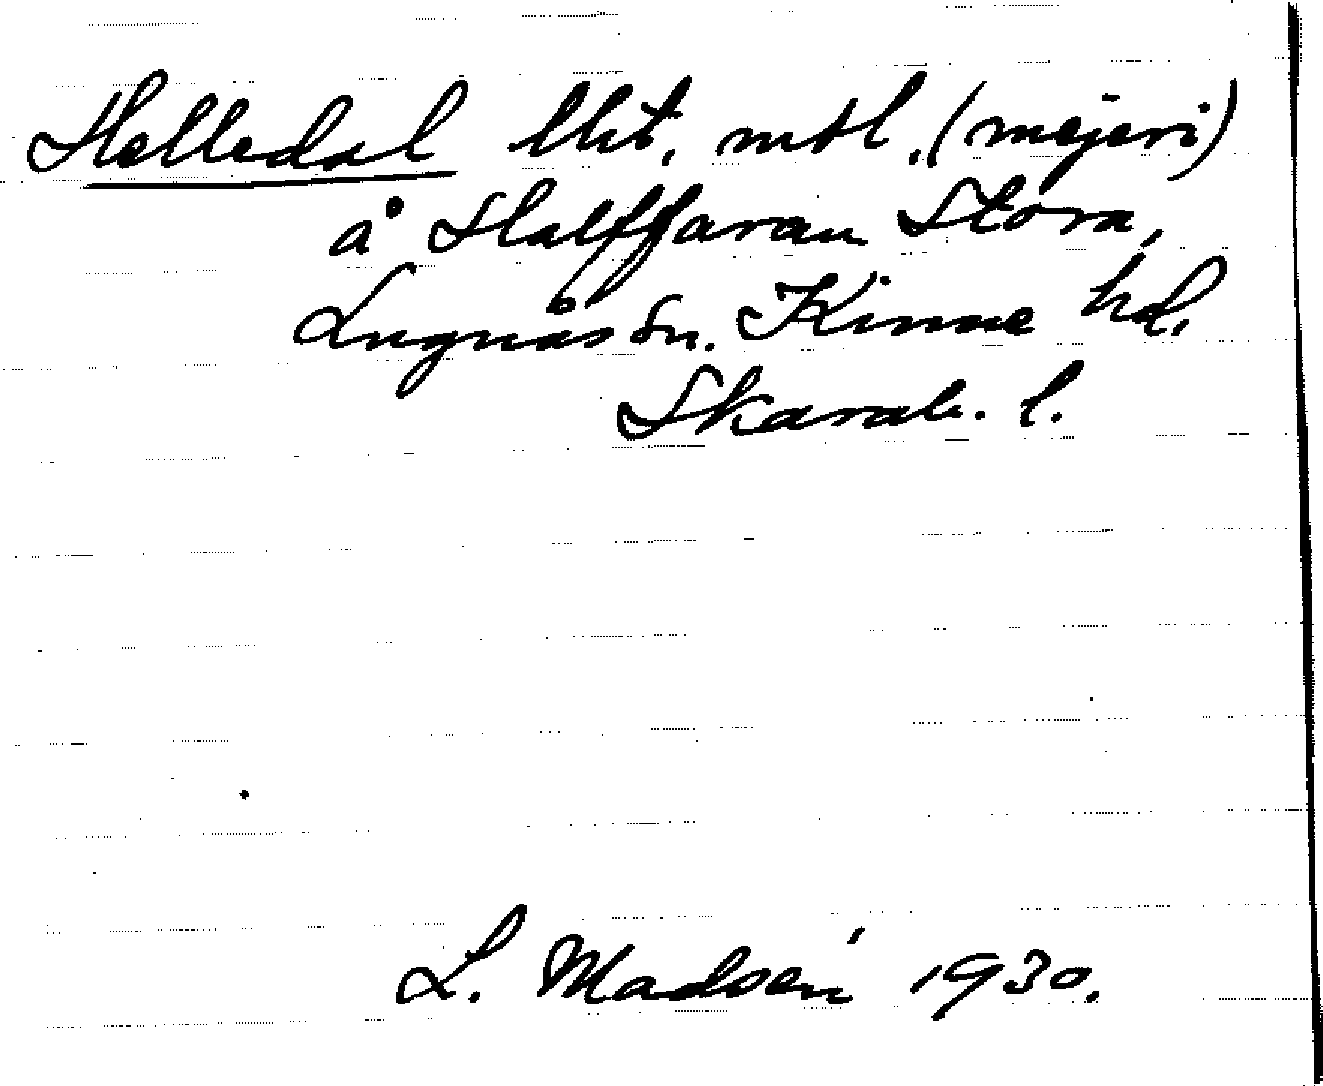 Helledal lht. mtl. (mejeri)
å Halffaran Stora,
Lugnås sn. Kinne hd.
Skarab. l.
L. Madsén 1930.